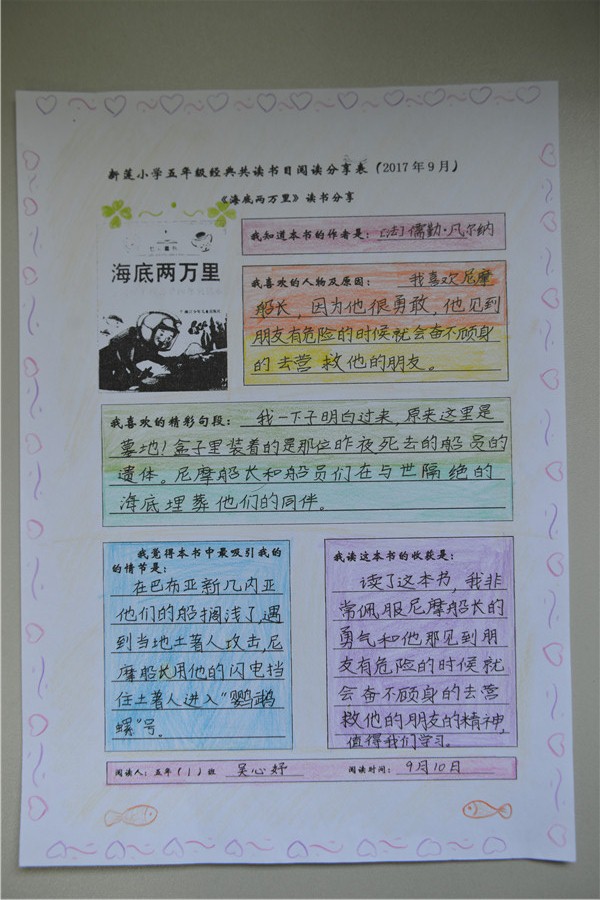 新莲小学五年级经典共读书目阅读分享表（2017年9月）
《海底两万里》读书分享
海底两万里
我知道本书的作者是：[法]儒勤·凡尔纳
我喜欢的人物及原因：我喜欢尼摩
船长，因为他很勇敢，他见到
朋友有危险的时候就会奋不顾身
的去营救他的朋友。
我喜欢的精彩句段：我一下子明白过来，原来这里是
墓地！盒子里装着的是那位昨夜死去的船员的
遗体。尼摩船长和船员们在与世隔绝的
海底埋葬他们的同伴。
我觉得本书中最吸引我的
的情节是：
在巴布亚新几内亚
他们的船搁浅了，遇
到当地土著人攻击，尼
摩船长用他的闪电挡
住土著人进入“鹦鹉
螺”号。
我读这本书的收获是：
读了这本书，我非
常佩服尼摩船长的
勇气和他那见到朋
友有危险的时候就
会奋不顾身的去营
救他的朋友的精神，
值得我们学习。
阅读人：五年（1）班 吴心妤 阅读时间：9月10日